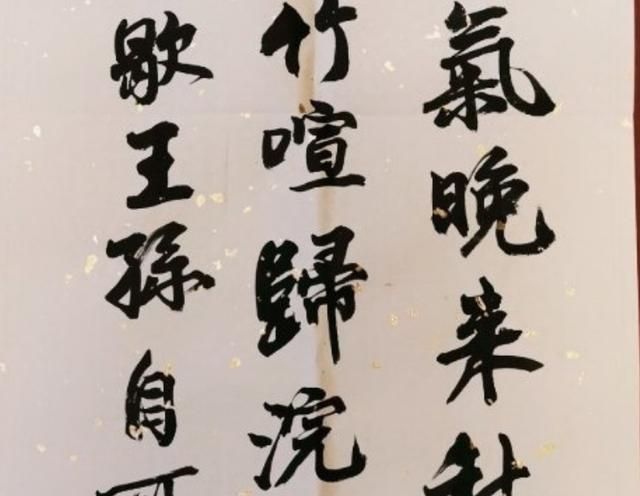 氣晚来秋
竹喧歸浣
歇王孫自可